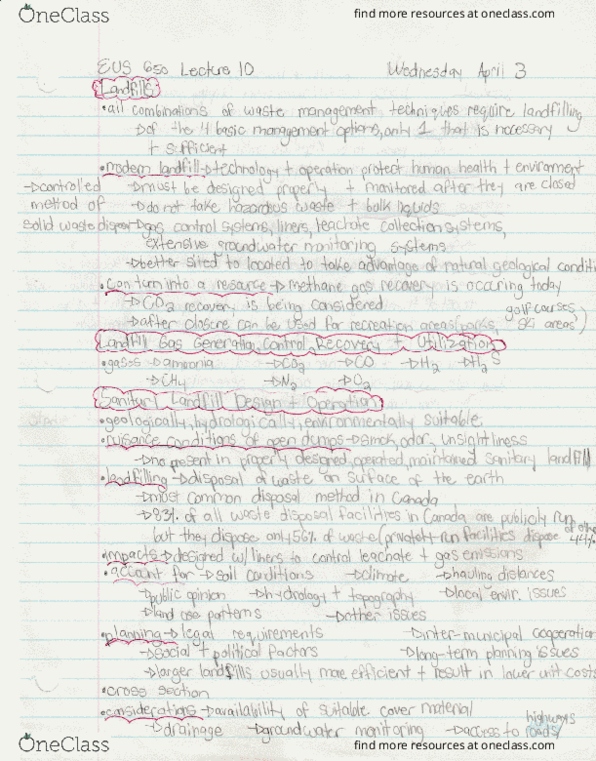 OneClass
find more resources at oneclass.com
EUS 650 Lecture 10 Wednesday April 3
Landfills
•all combinations of waste management techniques require landfilling
→of the 4 basic management options, only 1 that is necessary
+ sufficient
•modern landfill→technology + operation protect human health + environment
→controlled method of solid waste disposal
→must be designed properly + monitored after they are closed
→do not take hazardous waste + bulk liquids
→gas control systems, liners, leachate collection systems,
extensive groundwater monitoring systems
→better sited to located to take advantage of natural geological conditi
•can turn into a resource→methane gas recovery is occuring today
→CO2 recovery is being considered
→after closure can be used for recreation areas(parks, golf courses, ski areas)
Landfill Gas Generation, Control, Recovery + Utilization
•gases→ammonia →CO2 →CO →H2 →H2S
→CH4 →N2 →O2
Sanitary Landfill Design + Operation
•geologically, hydrologically, environmentally suitable
•nuisance conditions of open dumps→smok, odor, unsightliness
→no present in properly designed, operated, maintained sanitary landfill
•landfilling→disposal of waste on surface of the earth
→most common disposal method in Canada
→83% of all waste disposal facilities in Canada are publicly run
but they dispose only 56% of waste (privately run facilities dispose of other 44%
•impacts→designed w/liners to control leachate + gas emissions
•account for→soil conditions →climate →hauling distances
→public opinion →hydrology + topography →local envir. issues
→land use patterns →other issues
•planning→legal requirements →inter-municipal cooperation
→social + political factors →long-term planning issues
→larger landfills usually more efficient + result in lower unit costs
•cross section
•considerations→availability of suitable cover material
→drainage →groundwater monitoring →access to highways roads/
OneClass
find more resources at oneclass.com